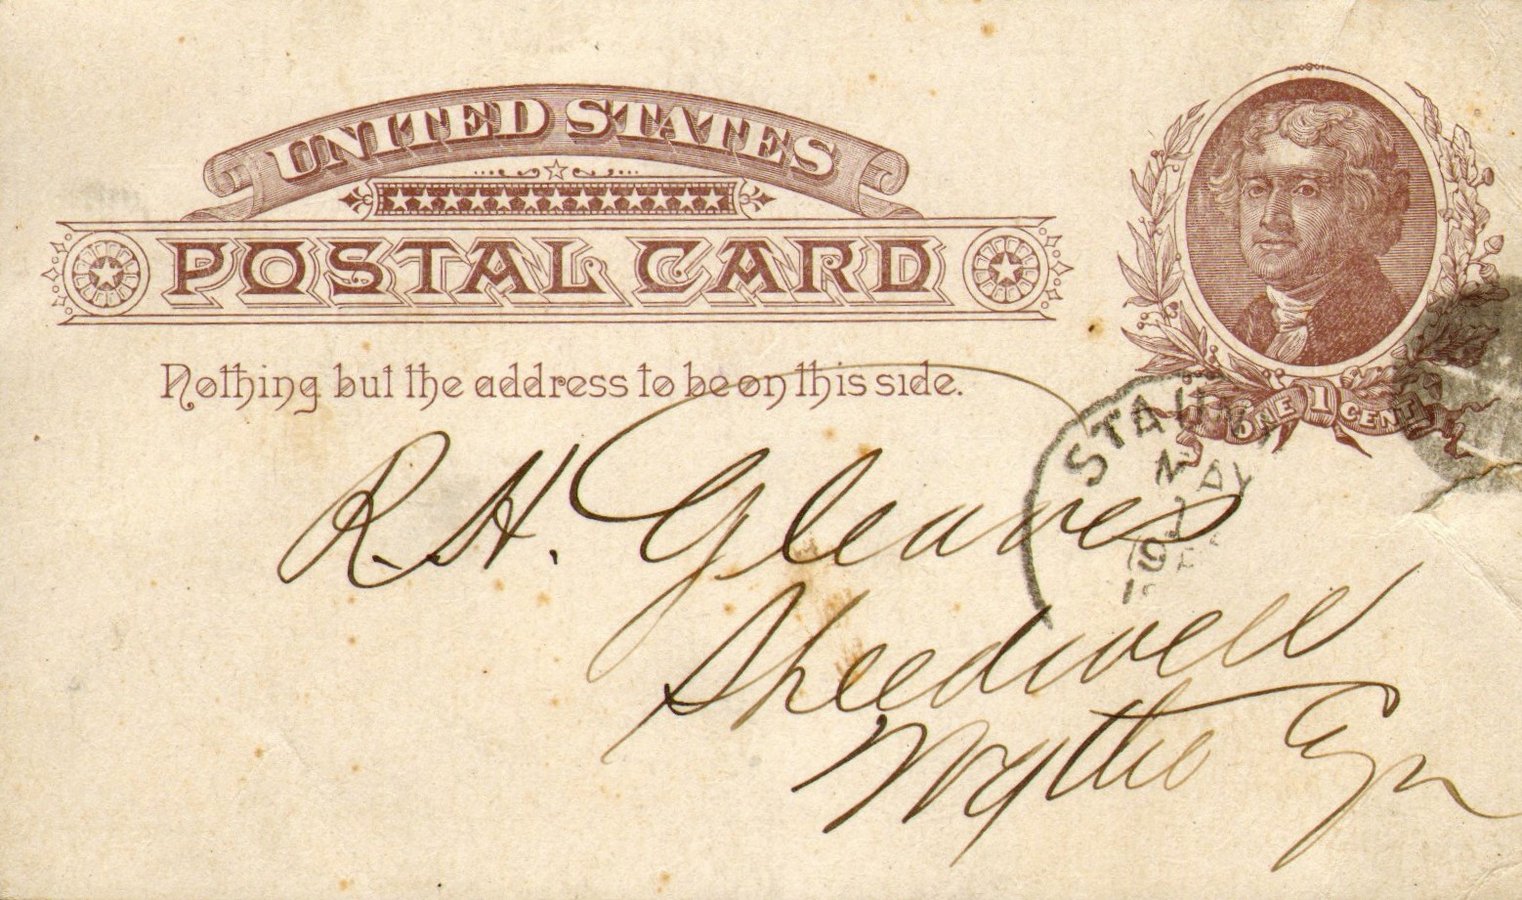 UNITED STATES
POSTAL CARD
Nothing but the address to be on this side.
ONE 1 CENT
STAU
R. H. Gleaves
Sheedwell
Wythe